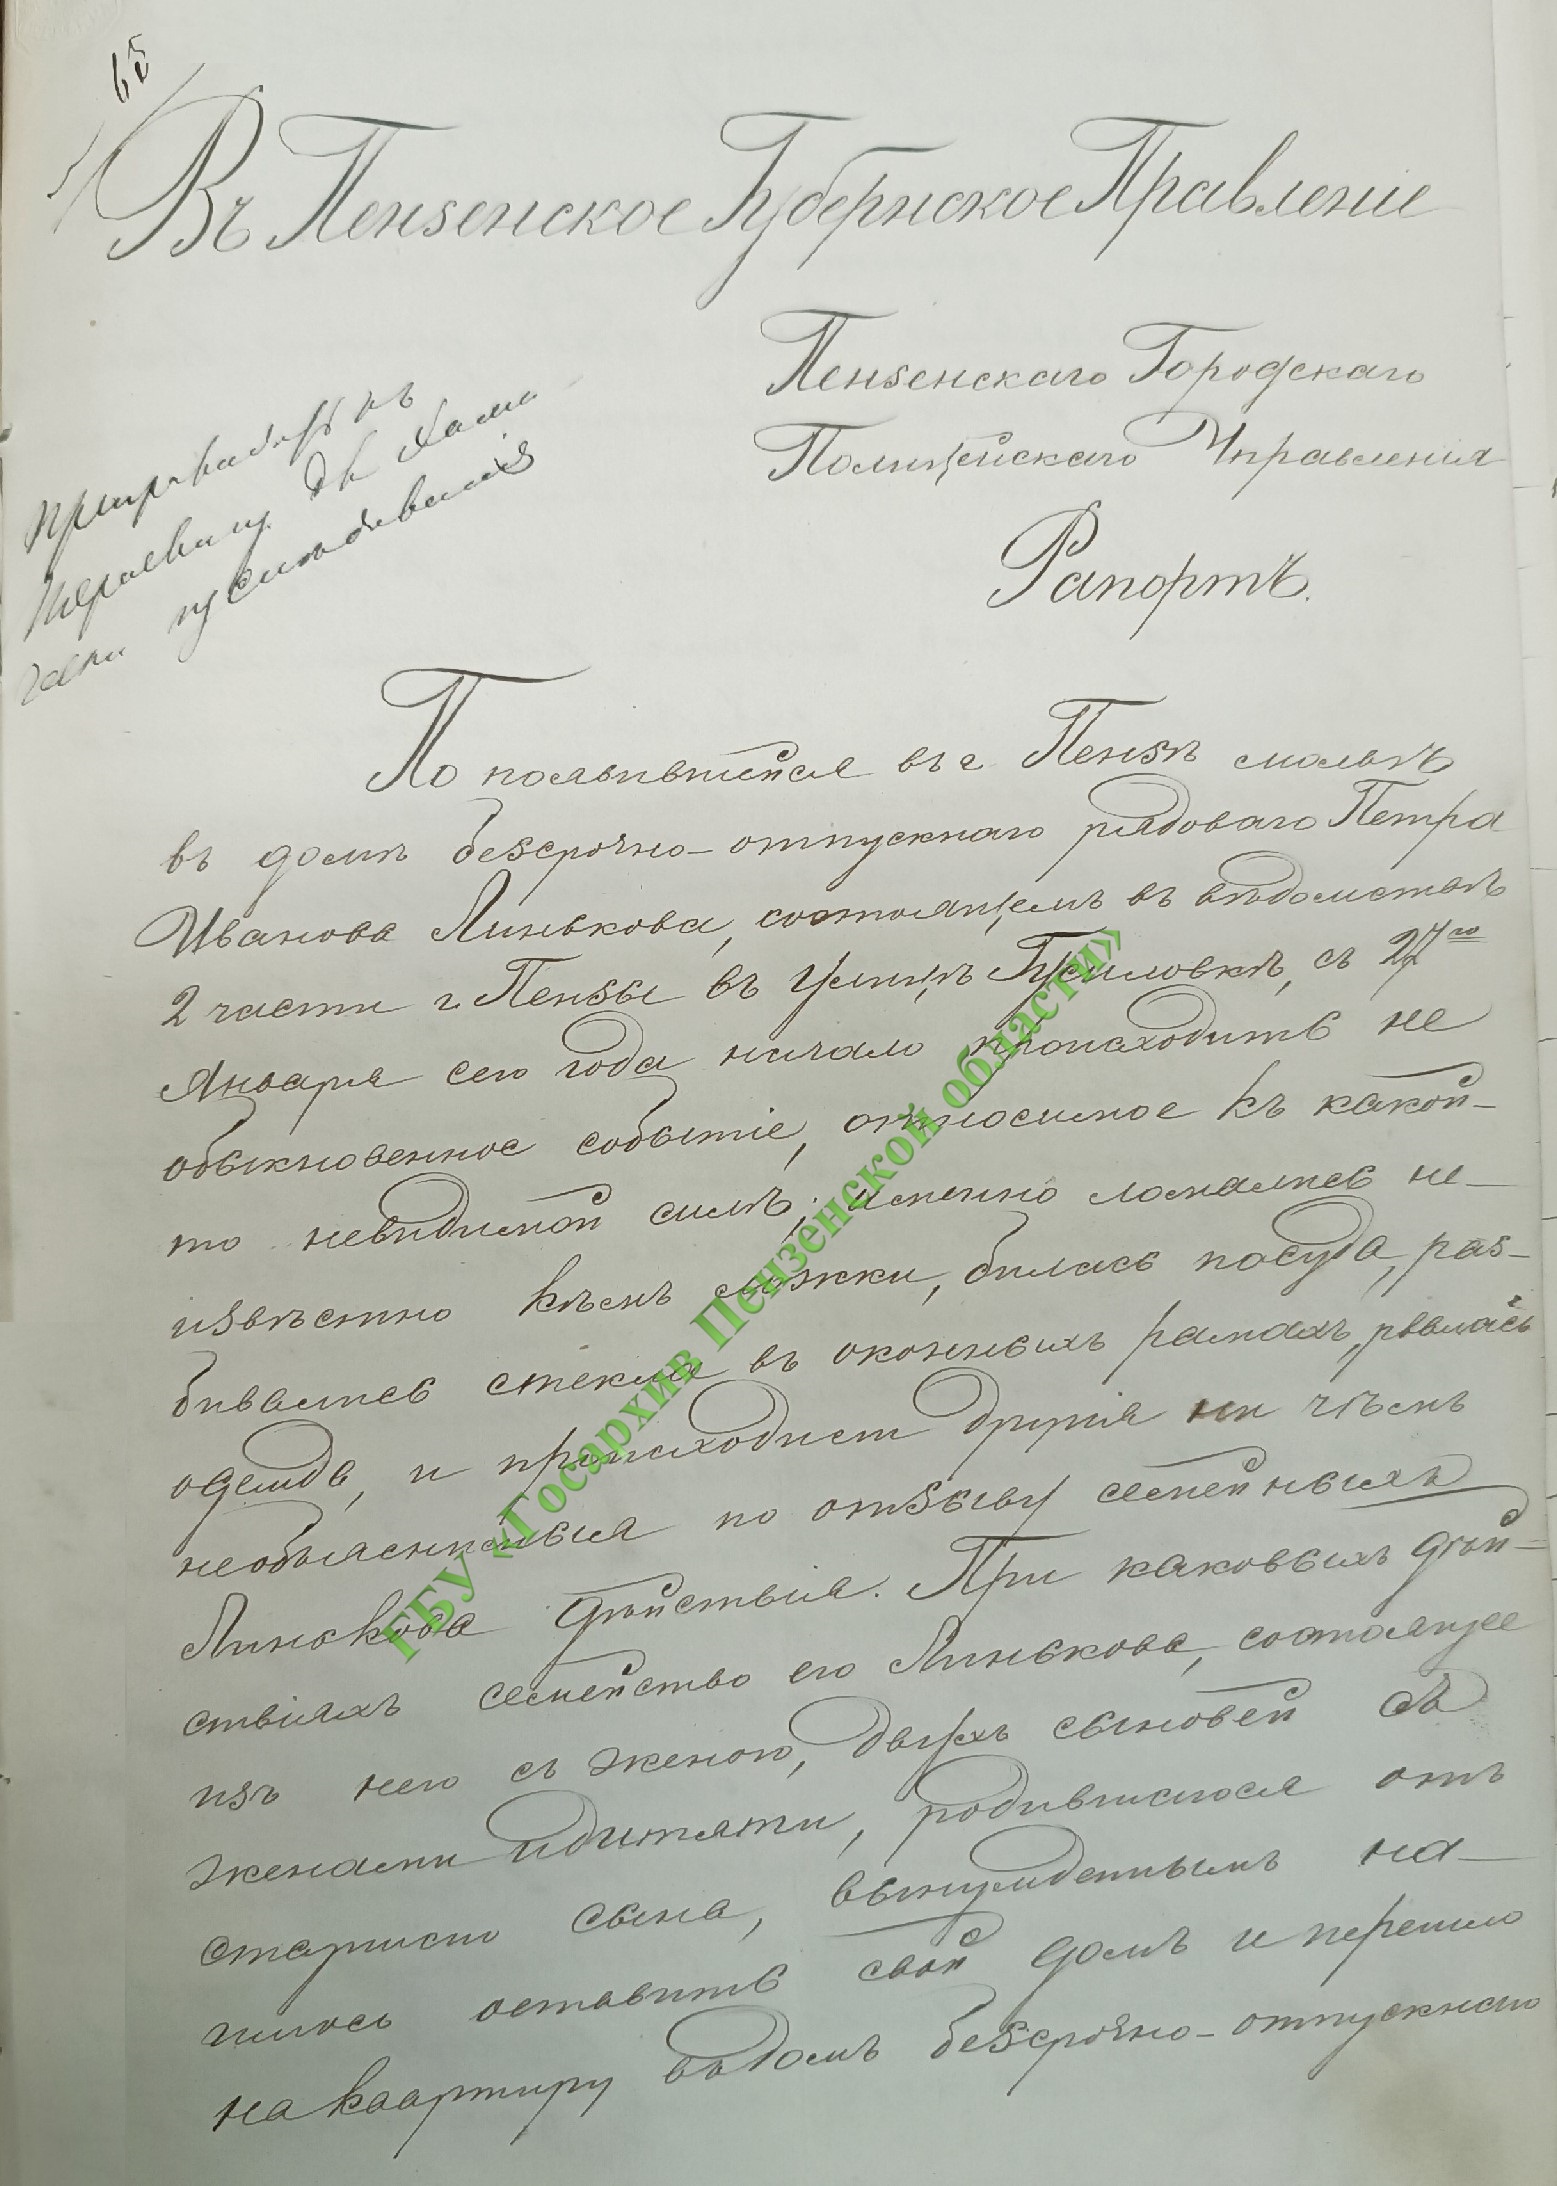 65
Въ Пензенское Губернское Правленіе
Пензенскаго Городскаго
Полицейскаго Управленія
Рапортъ.
По появившейся въ г. Пензѣ молвѣ
въ домѣ безсрочно-отпускнаго рядоваго Петра
Иванова Линькова, состоящемъ въ вѣдомствѣ
2 части г. Пензы въ улицѣ Гусиловкѣ, съ 27го
Января сего года начало происходить не
обыкновенное событіе, относимое къ какой-
то невидимой силѣ; именно ломались не-
извѣстно кѣмъ ложки, билась посуда, раз-
бивались стекла въ оконныхъ рамахъ, рвалась
одежда, и происходист другія ни чѣмъ
необъяснимыя по отзыву семейныхъ
Линькова дѣйствія. При каковыхъ дѣй-
ствіяхъ семейство его Линькова, состоящее
изъ него съ женою, двухъ сыновей съ
женами и дитяти, родившагося отъ
старшаго сына, вынужденнымъ на-
шлось оставить свой домъ и перешло
на квартиру въ домъ безсрочно-отпускнаго
ГБУ «Госархив Пензенской области»